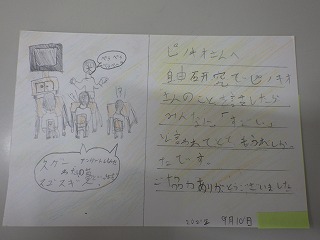 ピノキオさんへ
自由研究でピノキオ
さんのことを話したら
みんなに「すごい」
と言われてとてもうれしかっ
たです。
ご協力ありがとうございました
9月10日
ペラペラ
スゲー
スゴスギ